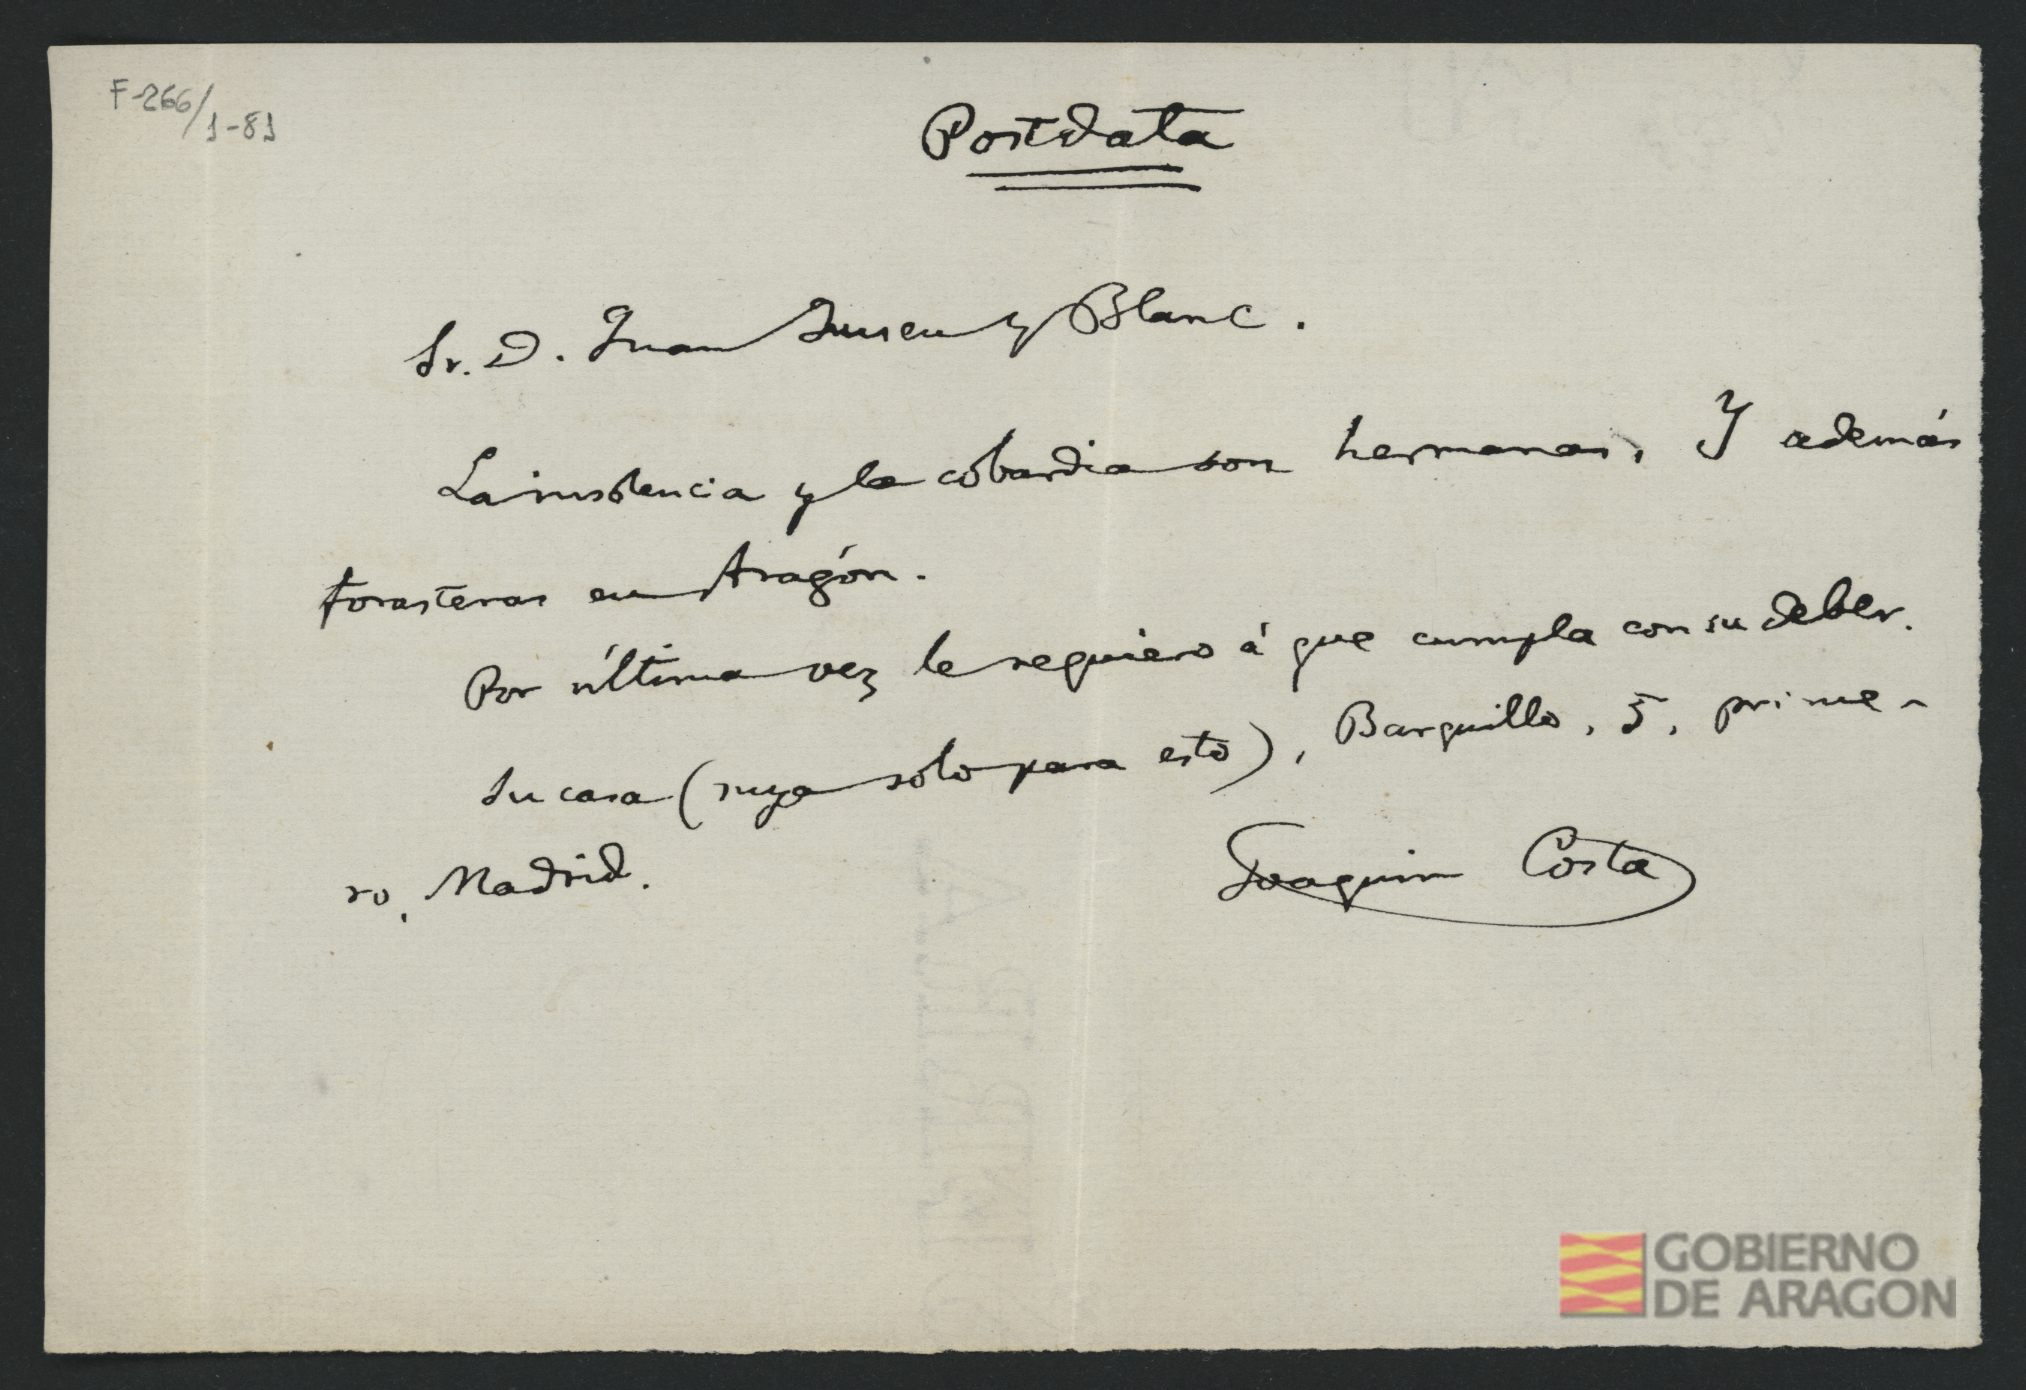 F-266/1-81
Postdata
Sr. D. Juan Juseu y Blanc.
La insolencia y la cobardia son hermanas. Y además
forasteras en Aragón.
Por última vez le requiero á que cumpla con su deber.
Su casa (suya solo para esto), Barquillo, 5, prime-
ro, Madrid.
Joaquin Costa
GOBIERNO
DE ARAGON